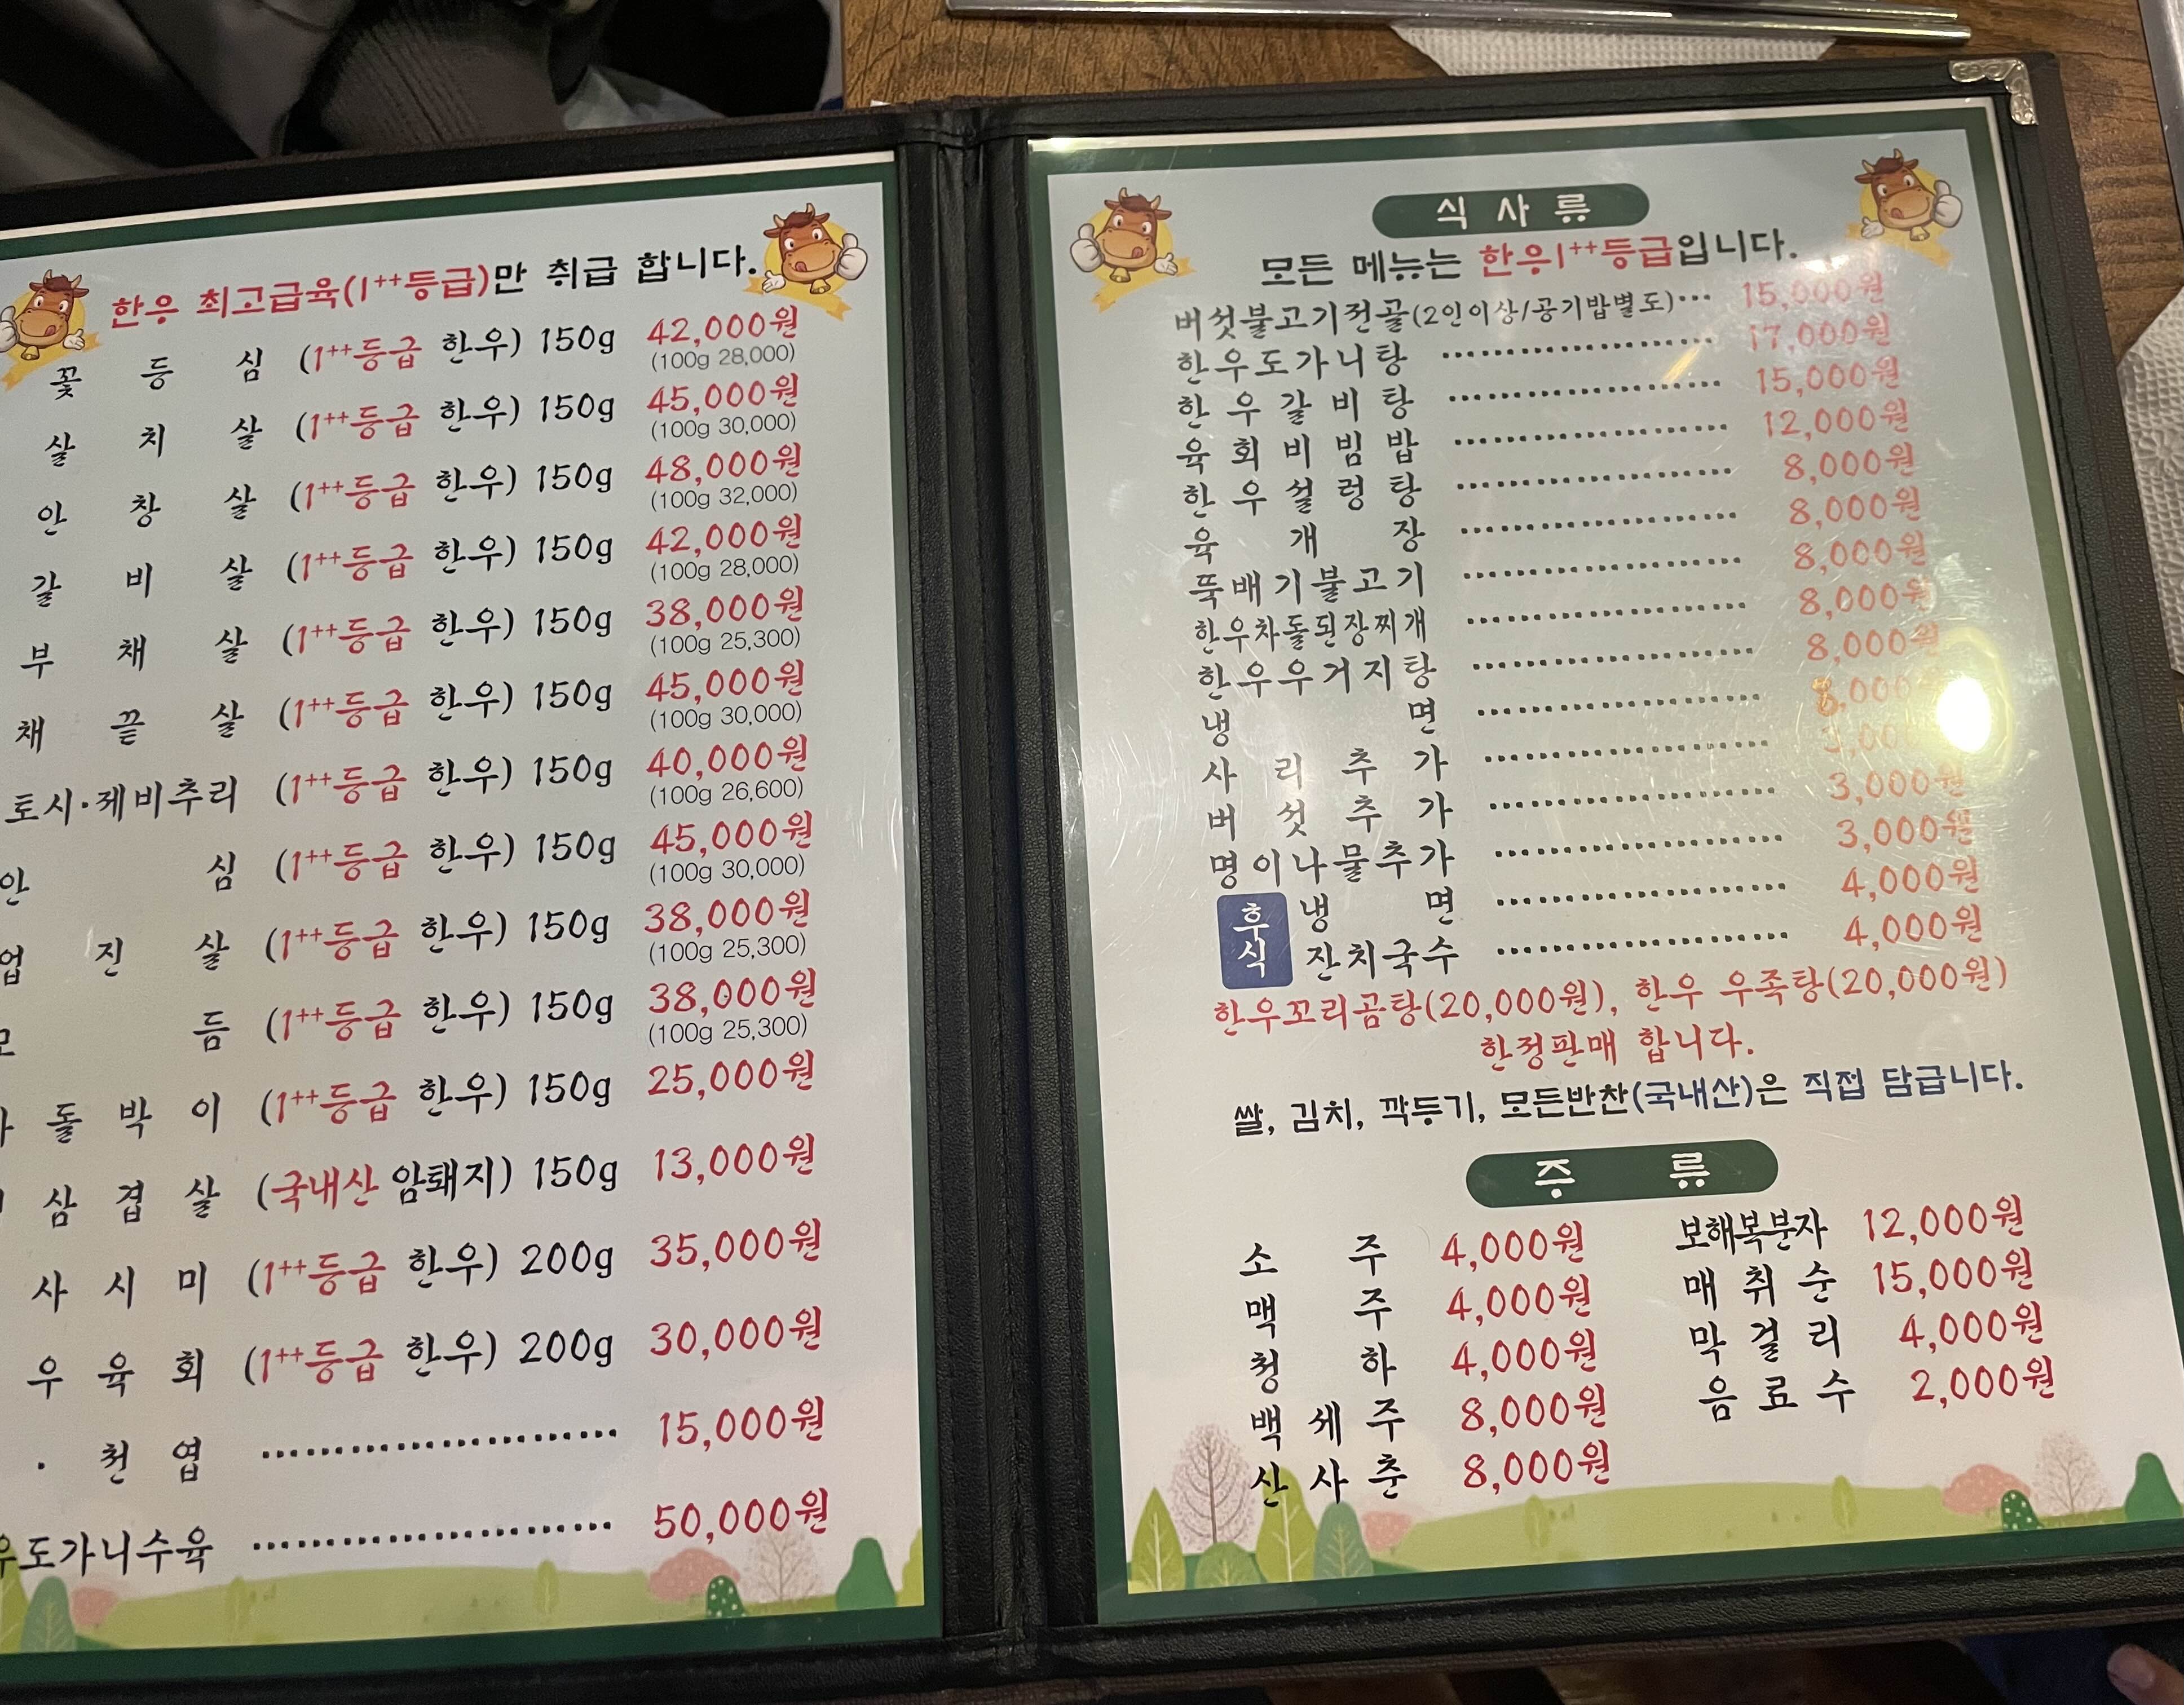 한우 최고급육(1++등급)만 취급 합니다.
꽃등심 (1++등급 한우) 150g 42,000원
(100g 28,000)
살치살 (1++등급 한우) 150g 45,000원
(100g 30,000)
안창살 (1++등급 한우) 150g 48,000원
(100g 32,000)
갈비살 (1++등급 한우) 150g 42,000원
(100g 28,000)
부채살 (1++등급 한우) 150g 38,000원
(100g 25,300)
채끝살 (1++등급 한우) 150g 45,000원
(100g 30,000)
토시·제비추리 (1++등급 한우) 150g 40,000원
(100g 26,600)
안심 (1++등급 한우) 150g 45,000원
(100g 30,000)
업진살 (1++등급 한우) 150g 38,000원
(100g 25,300)
모듬 (1++등급 한우) 150g 38,000원
(100g 25,300)
돌박이 (1++등급 한우) 150g 25,000원
삼겹살 (국내산 암퇘지) 150g 13,000원
사시미 (1++등급 한우) 200g 35,000원
우육회 (1++등급 한우) 200g 30,000원
· 천엽 15,000원
우도가니수육 50,000원
식사류
모든 메뉴는 한우1++등급입니다.
버섯불고기전골(2인이상/공기밥별도) 15,000원
한우도가니탕 17,000원
한우갈비탕 15,000원
육회비빔밥 12,000원
한우설렁탕 8,000원
육개장 8,000원
뚝배기불고기 8,000원
한우차돌된장찌개 8,000원
한우우거지탕 8,000원
냉면 8,000
사리추가
버섯추가 3,000원
명이나물추가 3,000원
후식 냉면 4,000원
잔치국수 4,000원
한우꼬리곰탕(20,000원), 한우 우족탕(20,000원)
한정판매 합니다.
쌀, 김치, 깍두기, 모든반찬(국내산)은 직접 담급니다.
주류
소주 4,000원 보해복분자 12,000원
맥주 4,000원 매취순 15,000원
청하 4,000원 막걸리 4,000원
백세주 8,000원 음료수 2,000원
산사춘 8,000원